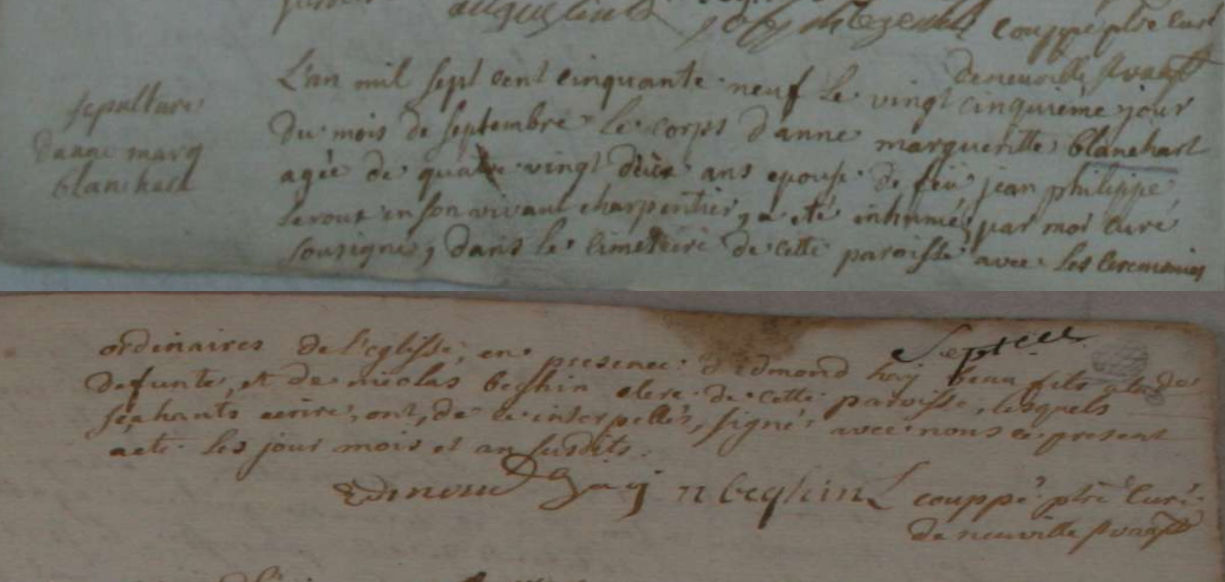 couppé ptre Curé
de neuville st vaast
sepulture
Danne marg
blanchart
L'an mil sept cent cinquante neuf Le vingt cinquieme jour
du mois de septembre le corps danne margueritte blanchart
agée de quatre vingt ans epouse de feu jean philippe
Leroux en son vivant charpentier, a eté inhumé, par moi curé
sousigné, dans le cimetiere de cette paroisse avec les ceremonies
ordinaires de l'eglisse, en presence d'edmond hay beau fils de
defunte, et de nicolas beghin clerc de cette paroisse, lesquels
scahants ecrire, ont, de ce interpellés, signés avec nous ce present
acte les jour mois et an susdits.
Edmond hay n beghin L couppé ptre Curé
de neuville st vaast